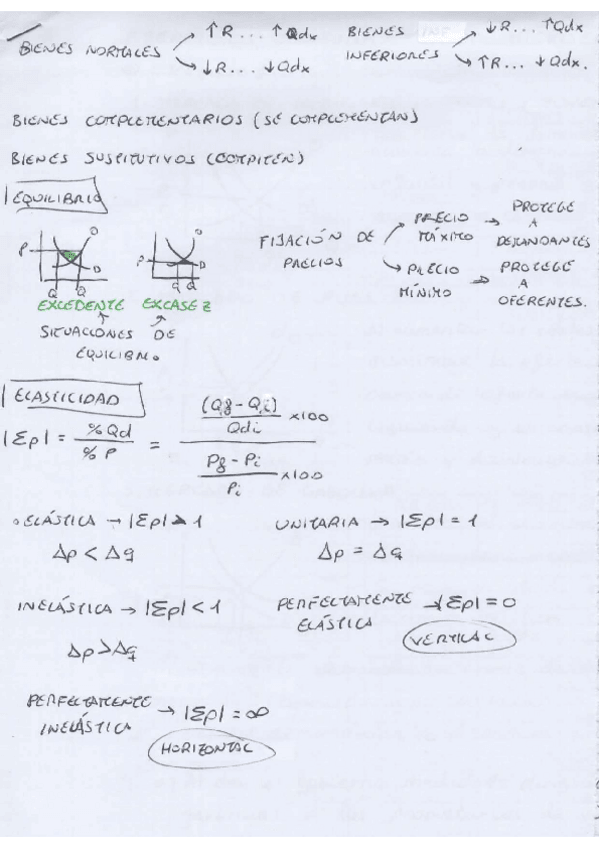 BIENES NORMALES → ↑R... ↑Qdx
→ ↓R... ↓Qdx
BIENES INFERIORES → ↓R... ↑Qdx
→ ↑R... ↓Qdx.
BIENES COMPLEMENTARIOS (SE COMPLEMENTAN)
BIENES SUSTITUTIVOS (COMPITEN)
EQUILIBRIO
P O D Q Q
P O D Q Q
EXCEDENTE EXCASEZ
SITUACIONES DE
EQUILIBRI.
FIJACIÓN DE
PRECIOS
→ PRECIO MÁXIMO → PROTEGE A DEMANDANTES
→ PRECIO MÍNIMO → PROTEGE A OFERENTES.
ELASTICIDAD
|Σp| = %Qd / %P = ((Qf - Qi) / Qdi x100) / (Pf - Pi / Pi x100)
ELÁSTICA → |Σp| > 1
Δp < Δq
UNITARIA → |Σp| = 1
Δp = Δq
INELÁSTICA → |Σp| < 1
Δp > Δq
PERFECTAMENTE
ELÁSTICA → |Σp| = 0
VERTICAL
PERFECTAMENTE
INELÁSTICA → |Σp| = ∞
HORIZONTAL